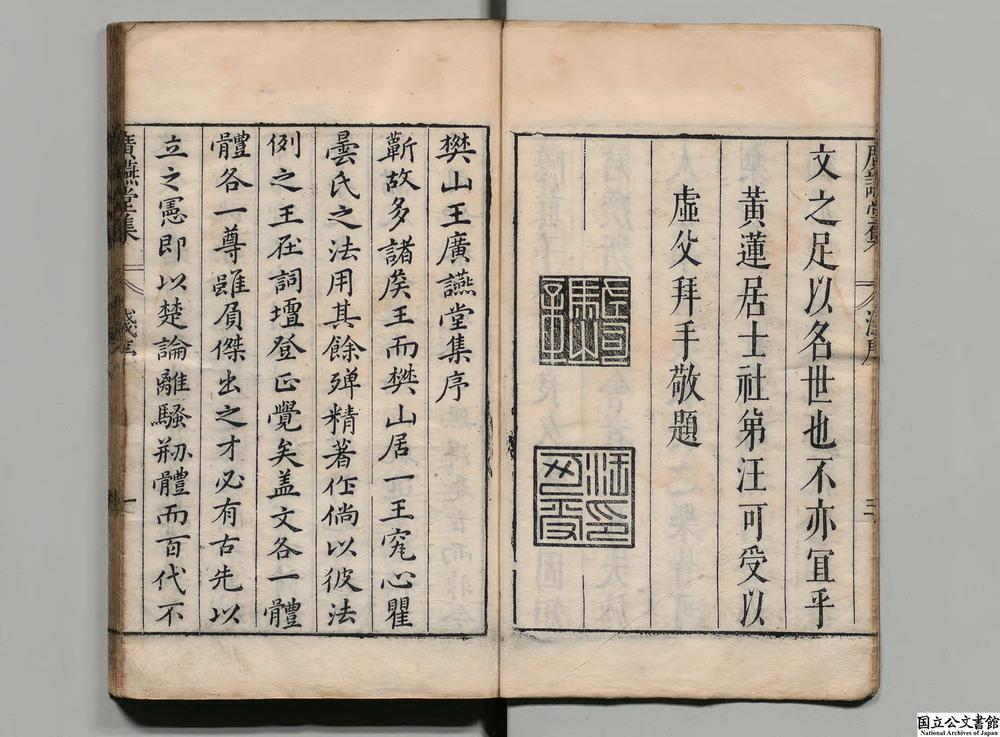 文之足以名世也不亦宜乎
黃蓮居士社弟汪可受以
虛父拜手敬題
汪印可受
樊山王廣讌堂集序
蘄故多諸矦王而樊山居一王窀心瞿
曇氏之法用其餘殫精著作倘以彼法
例之王在詞壇登正覺矣盖文各一體
體各一尊雖負傑出之才必有古先以
立之憲即以楚論離騷剏體而百代不
廣讌堂集
國立公文書館
National Archives of Japan